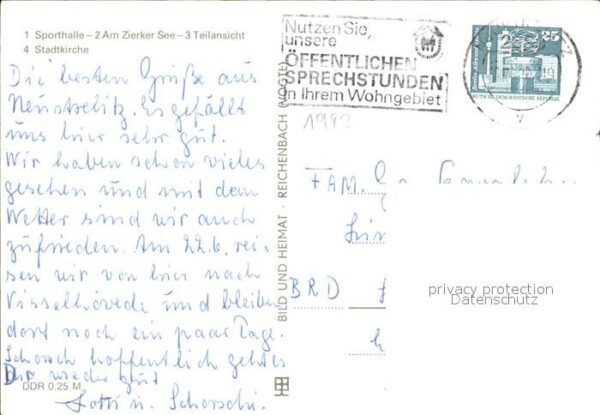 1 Sporthalle – 2 Am Zierker See – 3 Teilansicht
4 Stadtkirche
Die besten Grüße aus
Neustrelitz. Es gefällt
uns hier sehr gut.
Wir haben schon vieles
gesehen und mit dem
Wetter sind wir auch
zufrieden. Am 22.6. rei-
sen wir von hier nach
Visselhövede und bleiben
dort noch ein paar Tage.
Schorsch hoffentlich geht es
Dir wieder gut
Lotti u. Schorschi.
DDR 0,25 M
BILD UND HEIMAT · REICHENBACH (VOGTL)
Nutzen Sie
unsere
ÖFFENTLICHEN
SPRECHSTUNDEN
in Ihrem Wohngebiet
35
DEUTSCHE DEMOKRATISCHE REPUBLIK
FAM.
BRD
privacy protection
Datenschutz